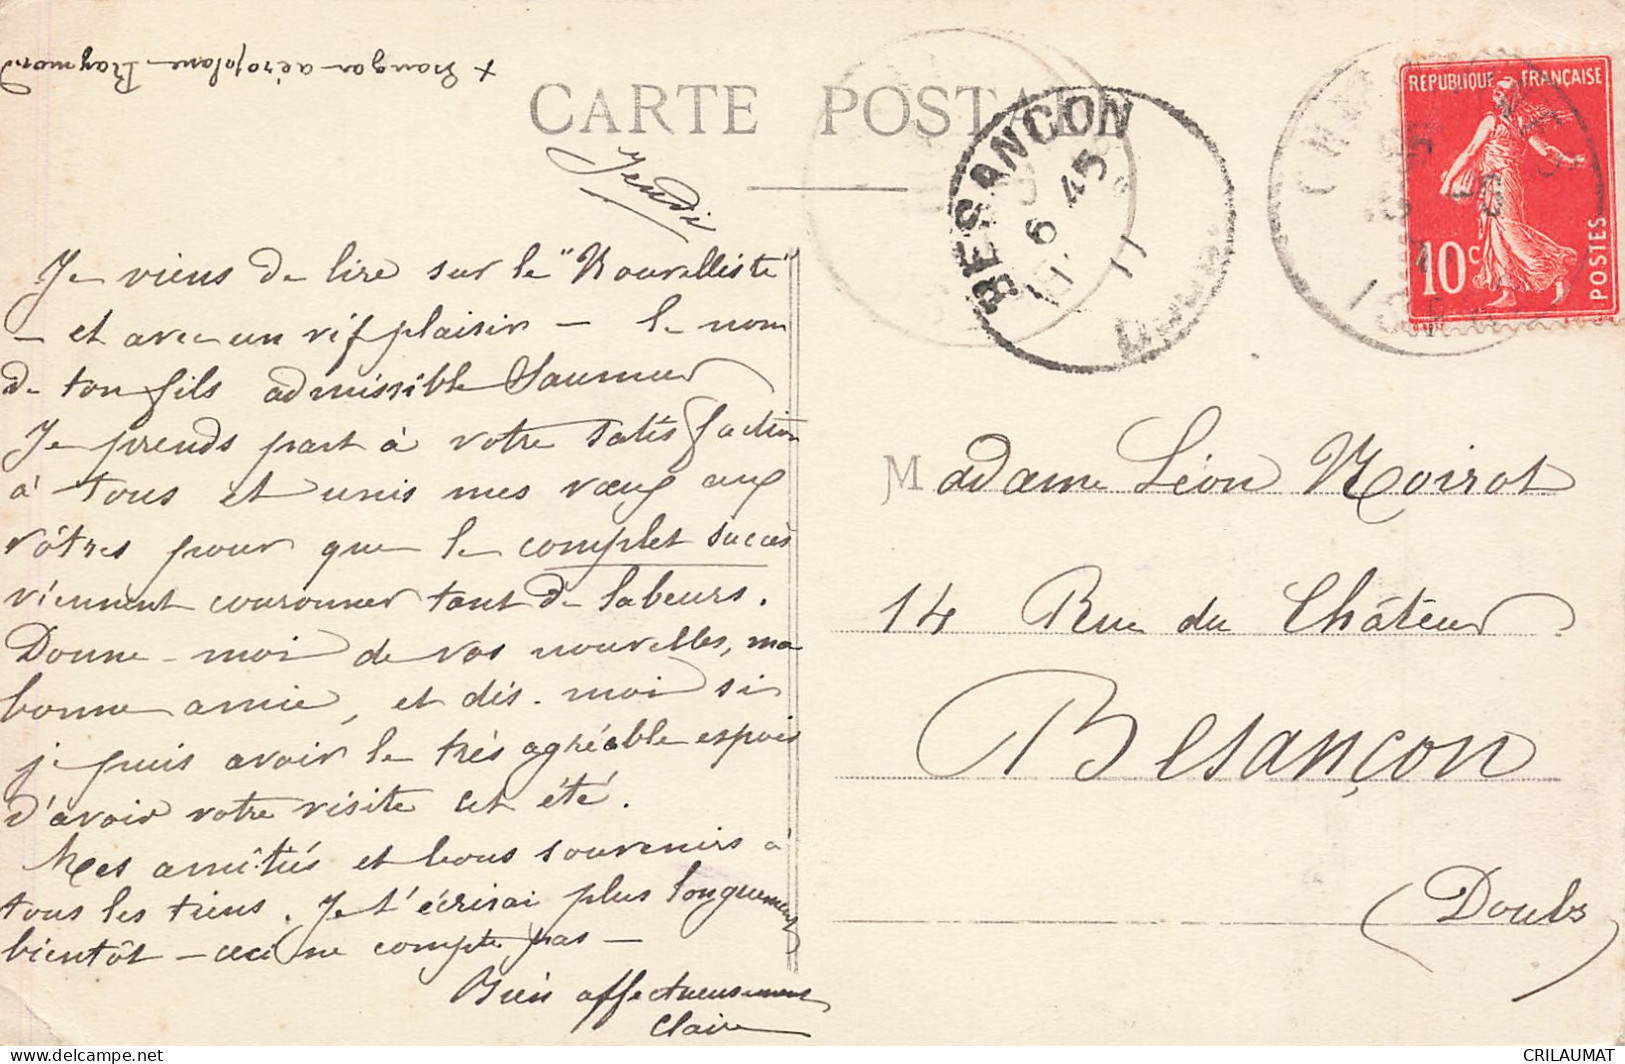 + hangar aéroplane Raymond
CARTE POSTALE
Jeudi
Je viens de lire sur le "Nouvelliste"
— et avec un vif plaisir — le nom
de ton fils admissible Saumur
Je prends part à votre satisfaction
à tous et unis mes vœux aux
vôtres pour que le complet succès
viennent couronner tant de labeurs.
Donne-moi de vos nouvelles, ma
bonne amie, et dis-moi si
je puis avoir le très agréable espoir
d'avoir votre visite cet été.
Mes amitiés et bons souvenirs à
tous les tiens. Je t'écrirai plus longuement
bientôt — ceci ne compte pas —
Bien affectueusement
Claire
BESANCON
6 45
11
REPUBLIQUE FRANÇAISE
10c
POSTES
Madame Léon Noirot
14 Rue du Château
Besançon
(Doubs)
CRILAUMAT